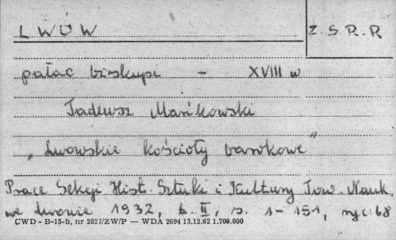 LWÓW
Z.S.R.R
pałac biskupi - XVIII w
Tadeusz Mańkowski
„Lwowskie kościoły barokowe"
Prace Sekcji Hist. Sztuki i Kultury Tow. Nauk.
we Lwowie 1932, t. II, s. 1-151, ryc. 68
CWD - B-15-b, nr 2027/ZW/P — WDA 2694 13.12.62 1.700.000